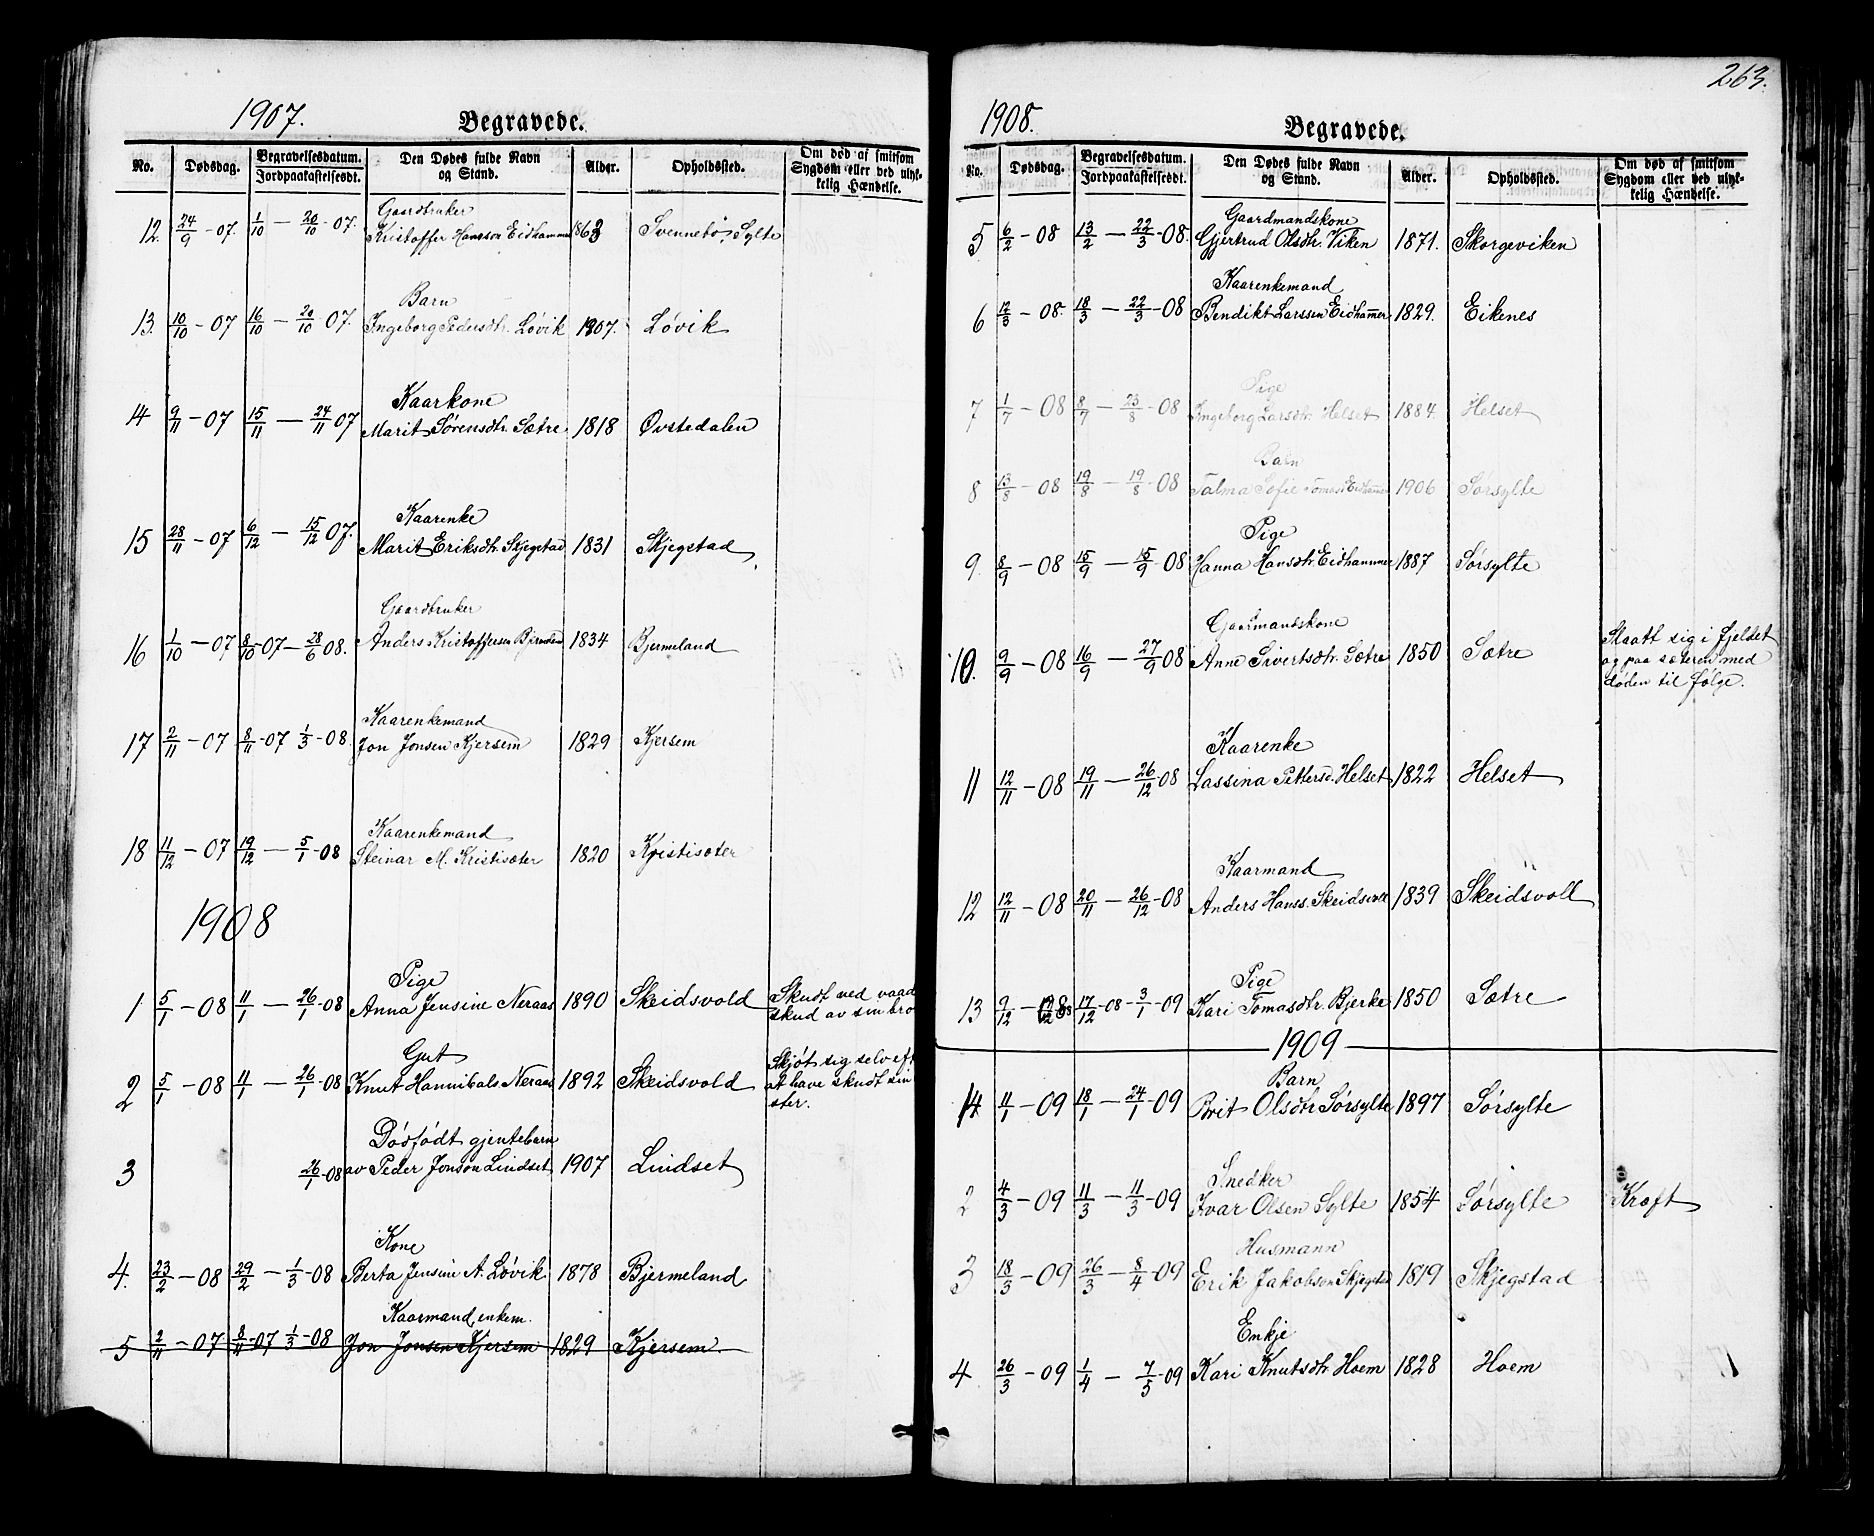 1907.
Begravede.
No. Dødsdag. Begravelsesdatum. Jordpaakastelsesdt. Den Dødes fulde Navn og Stand. Alder. Opholdssted. Om død af smitsom Sygdom eller ved ulykkelig Hændelse.
Gaardbruker
12. 24/9 - 07. 1/10 — 20/10 - 07. Kristoffer Hansson Eidhammer 1863 Svennebø, Sylte
Barn
13. 10/10 - 07 16/10 — 20/10 07. Ingeborg Pedersdtr. Løvik 1907. Løvik
Kaarkone
14 9/11 - 07 15/11 — 24/11 07 Marit Sørensdtr. Sætre 1818 Øvstedalen
Kaarenke
15 28/11 - 07 6/12 — 15/12 07. Marit Eriksdtr. Skjegstad 1831 Skjegstad
Gaardbruker
16 1/10 - 07 8/10 07 — 28/6 08. Anders Kristoffersen 1834 Bjermeland
Kaarenkemand
17 2/11 - 07 8/11 - 07 1/3 - 08 Jon Jonsen Kjersem 1829 Kjersem
Kaarenkemand
18 11/12 - 07 19/12 — 5/1 - 08 Steinar M. Kristisæter 1820 Kristisæter
1908
Pige
1 5/1 - 08 11/1 — 26/1 - 08 Anna Jensine Neraas 1890 Skeidsvold Skudt ved vaad
skud av sin bro
Gut
2 5/1 - 08 11/1 — 26/1 - 08 Knut Hannibals Neraas 1892 Skeidsvold Skjøt sig selv eft
at have skudt sin
ster.
Dødfødt gjentebarn
3 26/1 - 08 av Peder Jonson Lindset 1907 Lindset
Kone
4. 23/2 - 08 29/2 — 1/3 - 08 Berta Jensine A. Løvik 1878 Bjermeland
Kaarmand, enkem.
5 2/11 - 07 8/11 - 07 1/3 - 08 Jon Jonsen Kjersem 1829 Kjersem
263.
1908.
Begravede.
No. Dødsdag. Begravelsesdatum. Jordpaakastelsesdt. Den Dødes fulde Navn og Stand. Alder. Opholdssted. Om død af smitsom Sygdom eller ved ulykkelig Hændelse.
Gaardmandskone
5 6/2 - 08 13/2 — 22/3 - 08. Gjertrud Olsdtr. Viken 1871. Skorgeviken
Kaarenkemand
6 12/3 - 08. 18/3 — 22/3 - 08 Bendikt Larssen Eidhammer 1829. Eikenes
Pige
7 1/7 - 08 8/7 — 23/8 - 08 Ingeborg Larsdtr. Helset 1884. Helset
Barn
8 13/8 - 08 19/8 — 19/8 - 08 Talma Sofie Tomasd. Eidhammer 1906 Sørsylte
Pige
9. 8/9 - 08 15/9 — 15/9 08 Hanna Hansdtr. Eidhammer 1887 Sørsylte
Gaarmandskone
10. 9/9 - 08 16/9 — 27/9 08 Anne Sivertsdtr. Sætre 1850 Sætre Slaatt sig i fjeldet
og paa sæteren med
døden til følge.
Kaarenke
11 12/11 - 08 19/11 — 26/12 - 08 Lassina Pettersd. Helset 1822 Helset
Kaarmand
12 12/11 - 08 20/11 — 26/12 - 08 Anders Hanss. Skeidsvoll 1839 Skeidsvoll
Pige
13 9/12 - 08 17/12 - 08 - 3/1 - 09 Kari Tomasdtr. Bjerke 1850 Sætre
1909
Barn
1 11/1 - 09 18/1 — 24/1 - 09 Brit Olsdtr Sørsylte 1897 Sørsylte
Snedker
2 4/3 - 09 11/3 — 11/3 - 09 Ivar Olsen Sylte 1854 Sørsylte Kræft
Husmann
3 18/3 - 09 26/3 — 8/4 - 09 Erik Jakobson Skjegstad 1819 Skjegstad
Enkje
4 26/3 - 09 1/4 — 7/5 - 09 Kari Knutsdtr Hoem 1828 Hoem